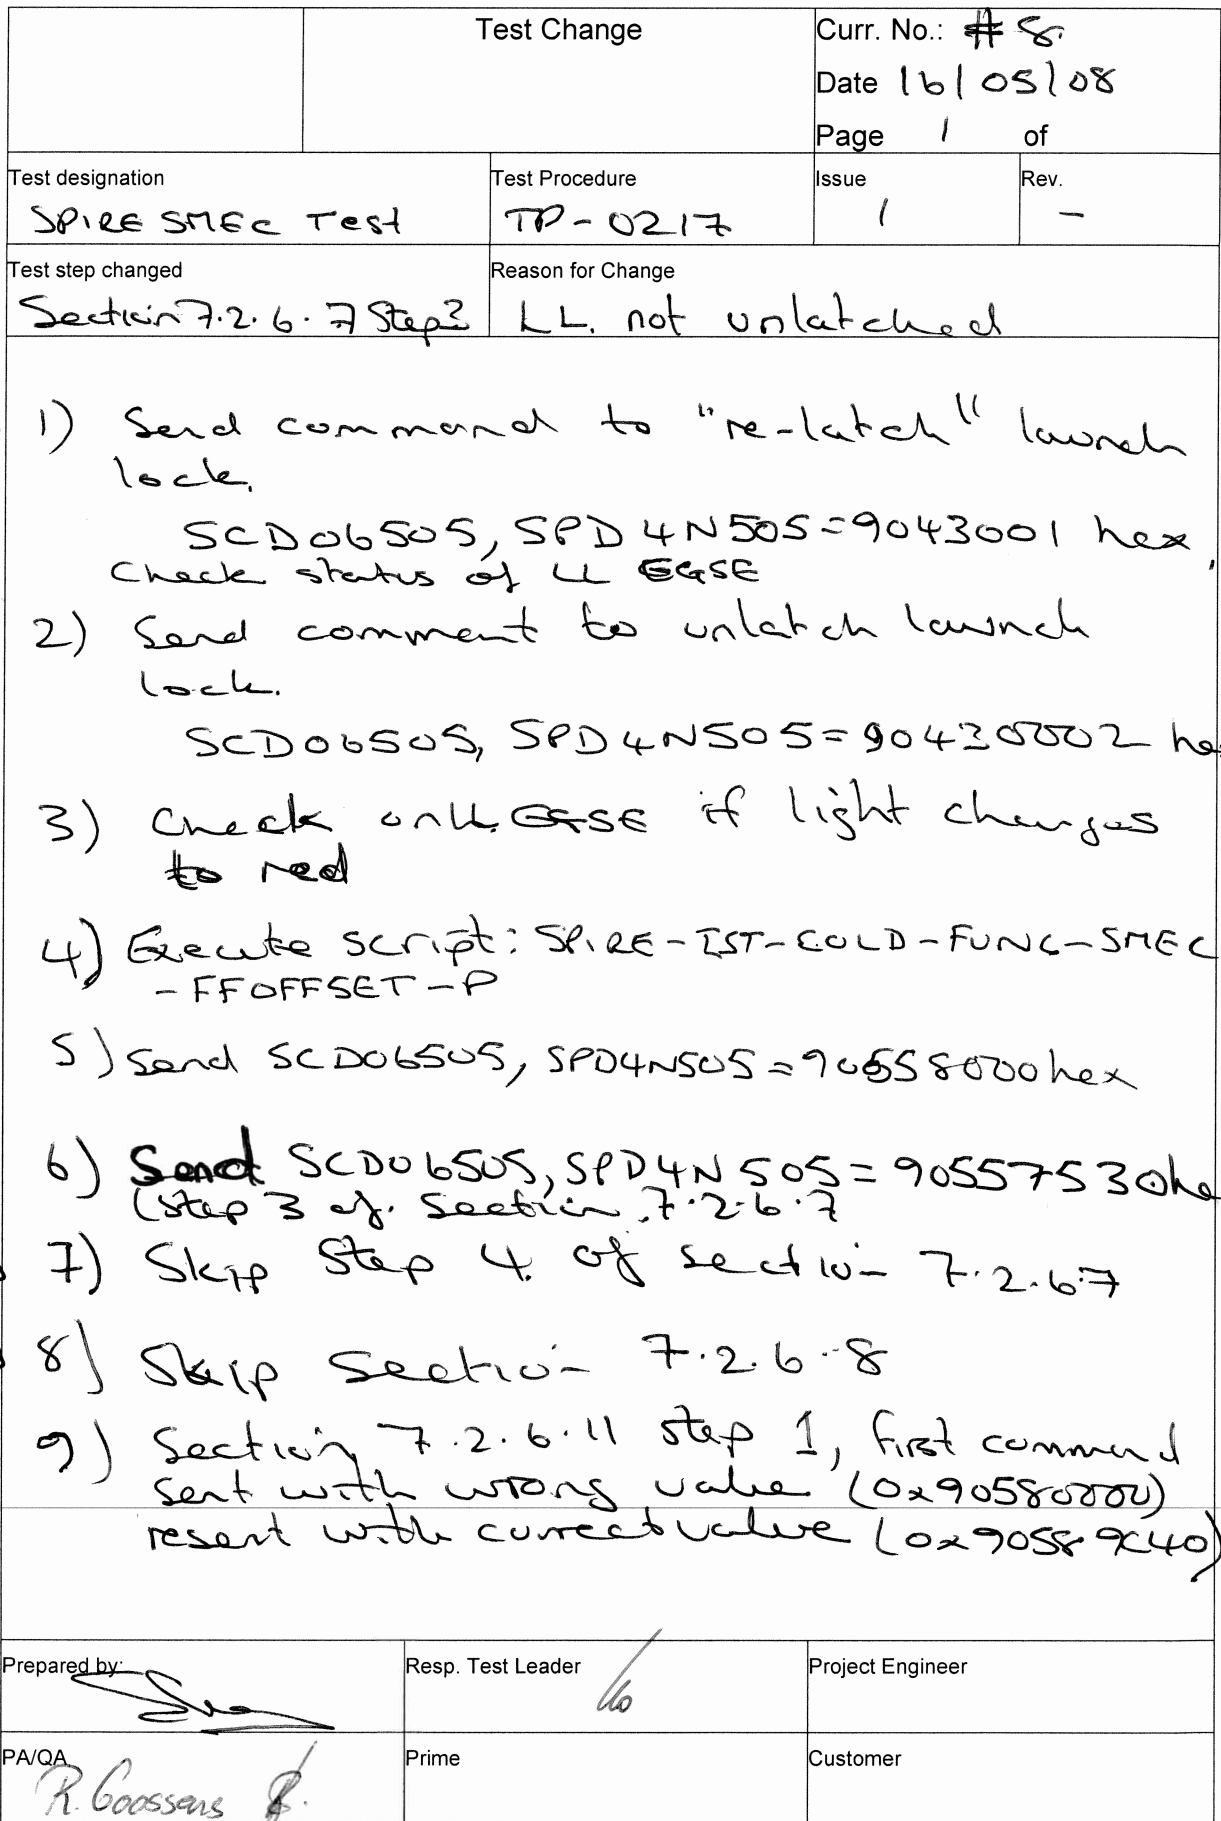 Test Change
Curr. No.: # 8.
Date 16/05/08
Page 1 of
Test designation
SPIRE SMEC Test
Test Procedure
TP-0217
Issue
1
Rev.
-
Test step changed
Section 7.2.6.7 Step?
Reason for Change
LL. not unlatched
1) Send command to "re-latch" launch
lock.
SCD06505, SPD4N505=9043001 hex,
Check status of LL EGSE
2) Send comment to unlatch launch
lock.
SCD06505, SPD4N505=90430002 he
3) Check on LL EGSE if light changes
to red
4) Execute script: SPIRE-IST-COLD-FUNC-SMEC
-FFOFFSET-P
5) Send SCD06505, SPD4N505=90558000hex
6) Send SCD06505, SPD4N505=90557530he
(step 3 of. Section 7.2.6.7
7) Skip Step 4. of section 7.2.6.7
8) Skip Section 7.2.6.8
9) Section 7.2.6.11 step 1, first command
sent with wrong value (0x90580000)
resent with correct value (0x90589C40)
Prepared by:
Resp. Test Leader
Project Engineer
PA/QA
R. Goossens
Prime
Customer